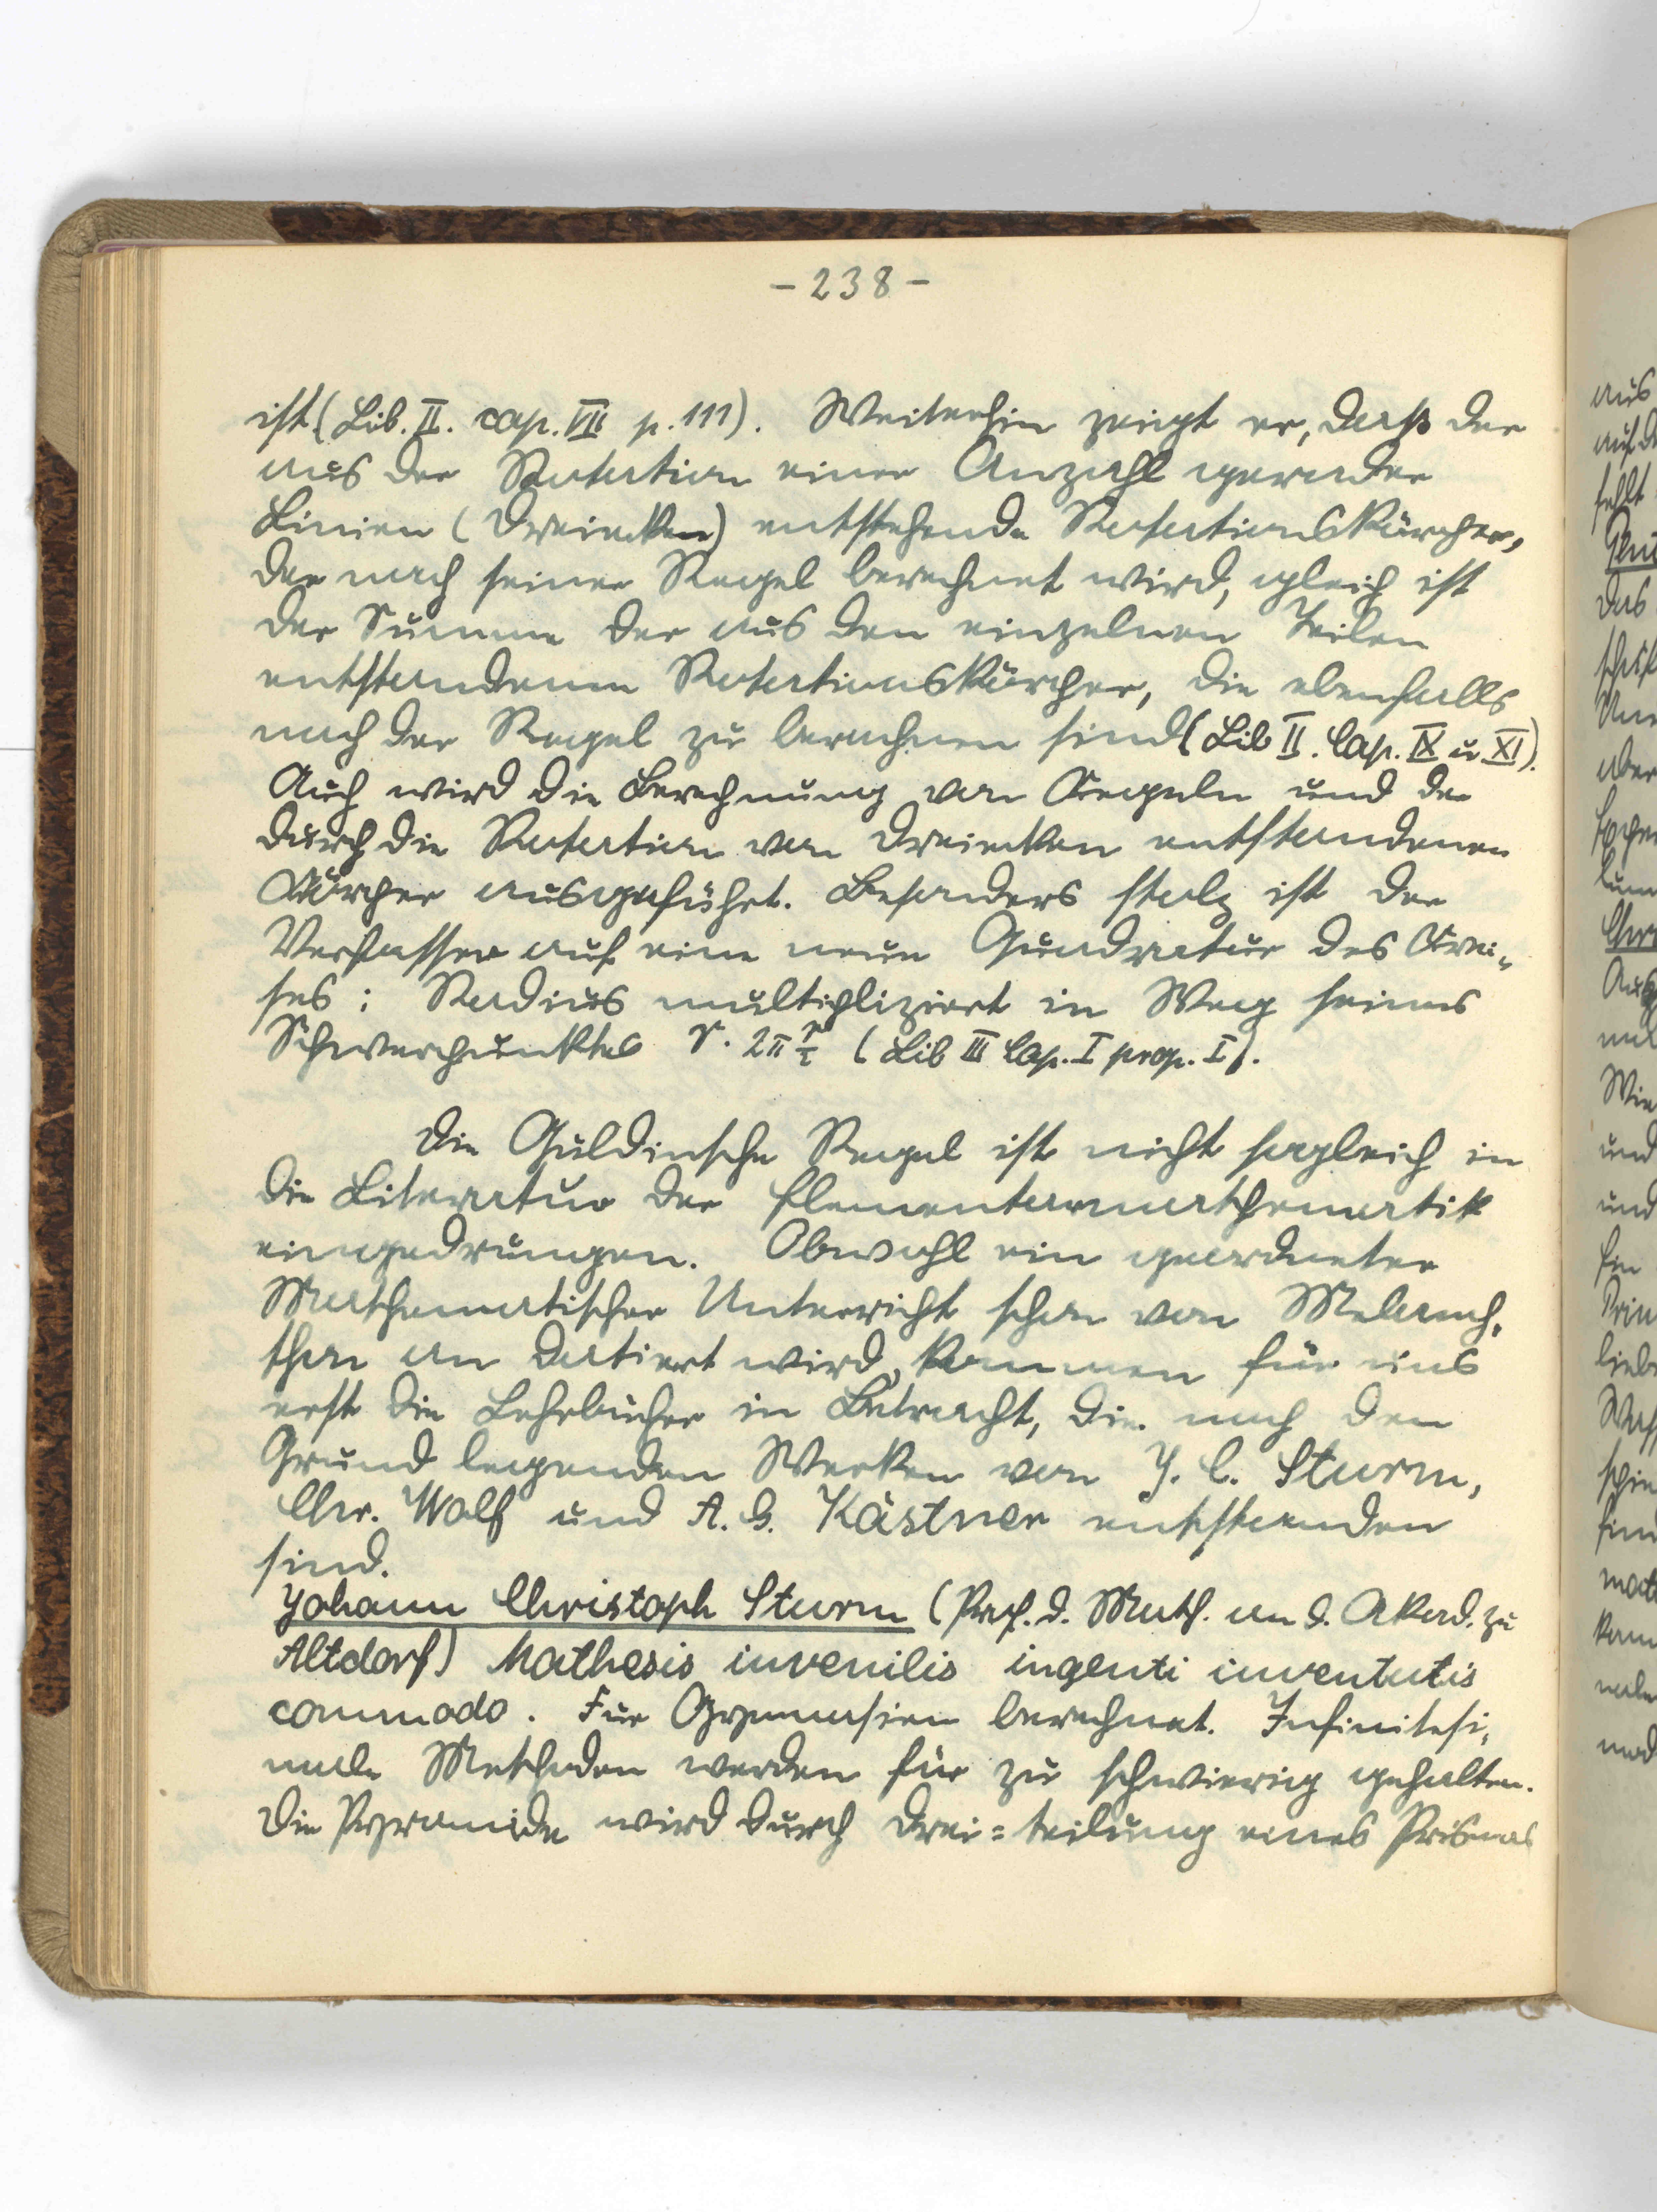 - 238 -
ist (Lib. II. cap. VIII p. 111). Weiterhin zeigt er, dass der
aus der Rotation einer Anzahl gerader
Linien (Dreiecken) entstehende Rotationskörper,
der nach seiner Regel berechnet wird, gleich ist
der Summe der aus den einzelnen Teilen
entstandenen Rotationskörper, die ebenfalls
nach der Regel zu berechnen sind (Lib II. Cap. IX u XI).
Auch wird die Berechnung von Kegeln und der
durch die Rotation von Dreiecken entstandenen
Körper ausgeführt. Besonders stolz ist der
Verfasser auf eine neue Quadratur des Krei-
ses: Radius multipliziert in Weg seines
Schwerpunktes r. 2π r/2 (Lib III Cap. I prop. I).
Die Guldinsche Regel ist nicht sogleich in
die Literatur der Elementarmathematik
eingedrungen. Obwohl ein geordneter
Mathematischer Unterricht schon von Melanch-
thon an datiert wird, kommen für uns
erst die Lehrbücher in Betracht, die nach den
Grund legenden Werken von J. C. Sturm,
Chr. Wolf und A. G. Kästner entstanden
sind.
Johann Christoph Sturm (Prof. d. Math. an d. Akad. zu
Altdorf) Mathesis iuvenilis ingenti iuventutis
commodo. Für Gymnasien berechnet. Infinitesi-
male Methoden werden für zu schwierig gehalten.
Die Pyramide wird durch Drei=teilung eines Prismas
aus
fehlt
das
aber
und
und